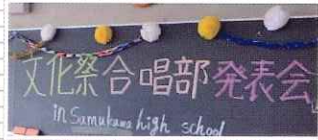 文化祭合唱部発表会
in Samukawa high school